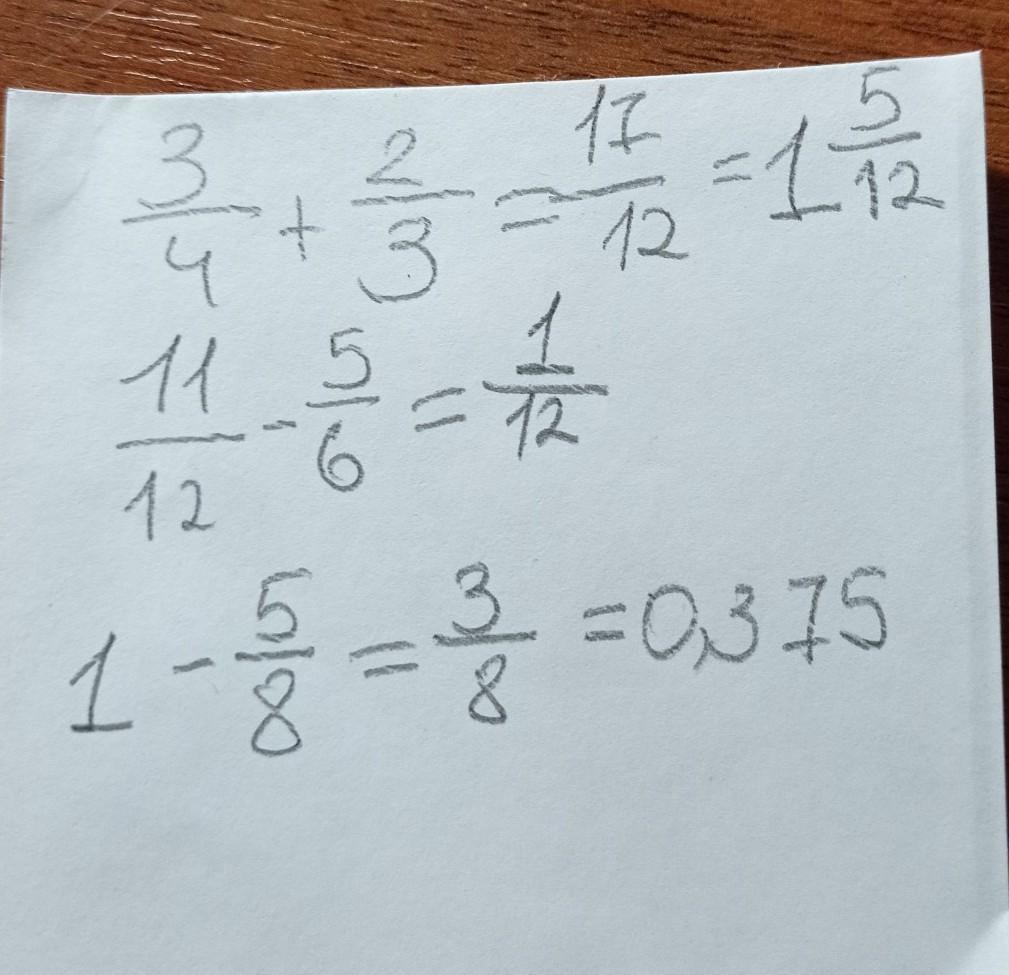 3/4 + 2/3 = 17/12 = 1 5/12
11/12 - 5/6 = 1/12
1 - 5/8 = 3/8 = 0,375